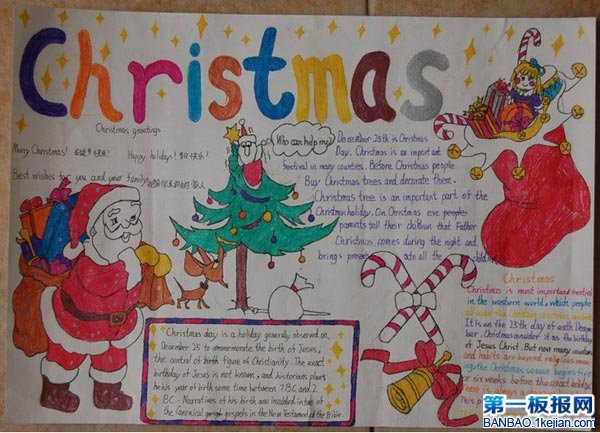 Christmas
Christmas greetings
Merry Christmas! 圣诞节快乐!
Happy holidays! 节日快乐!
Best wishes for you and your family
Who can help me?
December 25th is Christmas
Day. Christmas is an important
festival in many counties. Before Christmas people
Buy Christmas trees and decorate them.
Christmas tree is an important part of the
Christmas holiday. On Christmas eve people
parents tell their children that Father
Christmas comes during the night and
brings presents to all the children
Christmas
Christmas is most important festival
in the western world. Most people
all over the Christian countries
It is on the 25th day of each Decem-
ber. Christmas consider it as the birthday
of Jesus Christ. But now many
and habits are beyond religious
ing. the Christmas season begins five
or six weeks before the exact holiday
There is always
This
Christmas day is a holiday generally observed on
December 25 to ommemorate the birth of Jesus,
the central of birth figure of Christianity. The exact
birthday of Jesus is not known, and historians place
his year of birth some time between 7BC and 2
BC. Narratives of his birth are included in two of
the Canonical gospels in the New Testament of the Bible.
第一板报网
BANBAO.1kejian.com